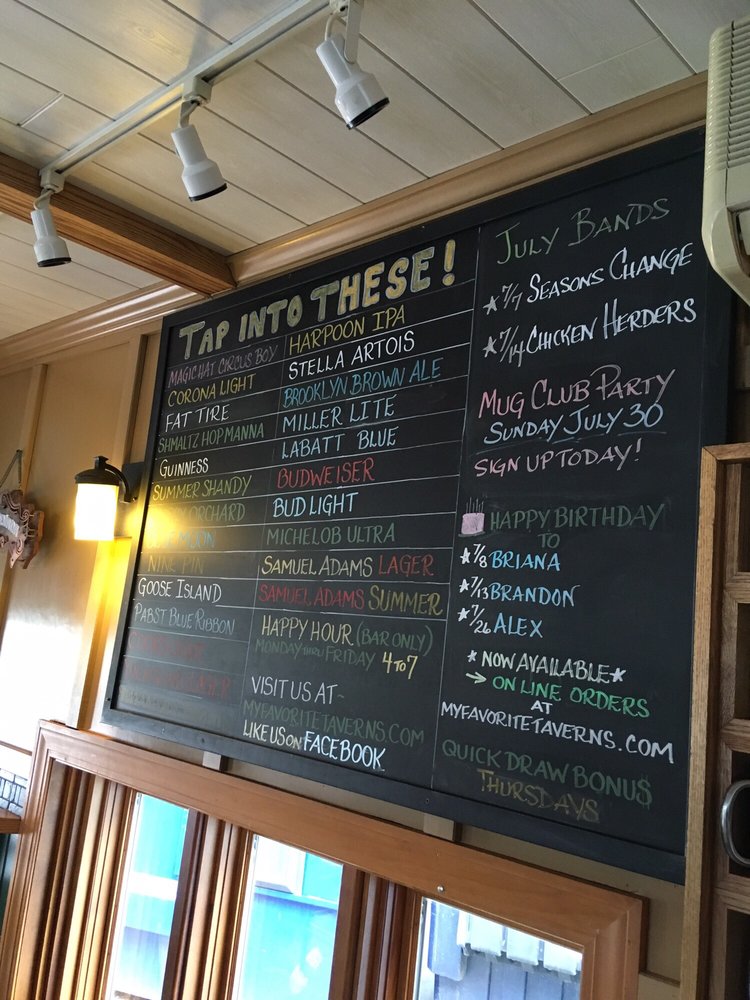 TAP INTO THESE!
MAGIC HAT CIRCUS BOY
CORONA LIGHT
FAT TIRE
SHMALTZ HOP MANNA
GUINNESS
SUMMER SHANDY
ORCHARD
MOON
NINE PIN
GOOSE ISLAND
PABST BLUE RIBBON
LAGER
HARPOON IPA
STELLA ARTOIS
BROOKLYN BROWN ALE
MILLER LITE
LABATT BLUE
BUDWEISER
BUD LIGHT
MICHELOB ULTRA
SAMUEL ADAMS LAGER
SAMUEL ADAMS SUMMER
HAPPY HOUR (BAR ONLY)
MONDAY THRU FRIDAY 4 TO 7
VISIT US AT~
MYFAVORITETAVERNS.COM
LIKE US ON FACEBOOK
JULY BANDS
★7/7 SEASONS CHANGE
★7/14 CHICKEN HERDERS
MUG CLUB PARTY
SUNDAY JULY 30
SIGN UP TODAY!
HAPPY BIRTHDAY
TO
★7/8 BRIANA
★7/13 BRANDON
★7/26 ALEX
★NOW AVAILABLE★
→ ON LINE ORDERS
AT
MYFAVORITETAVERNS.COM
QUICK DRAW BONU$
THURSDAYS